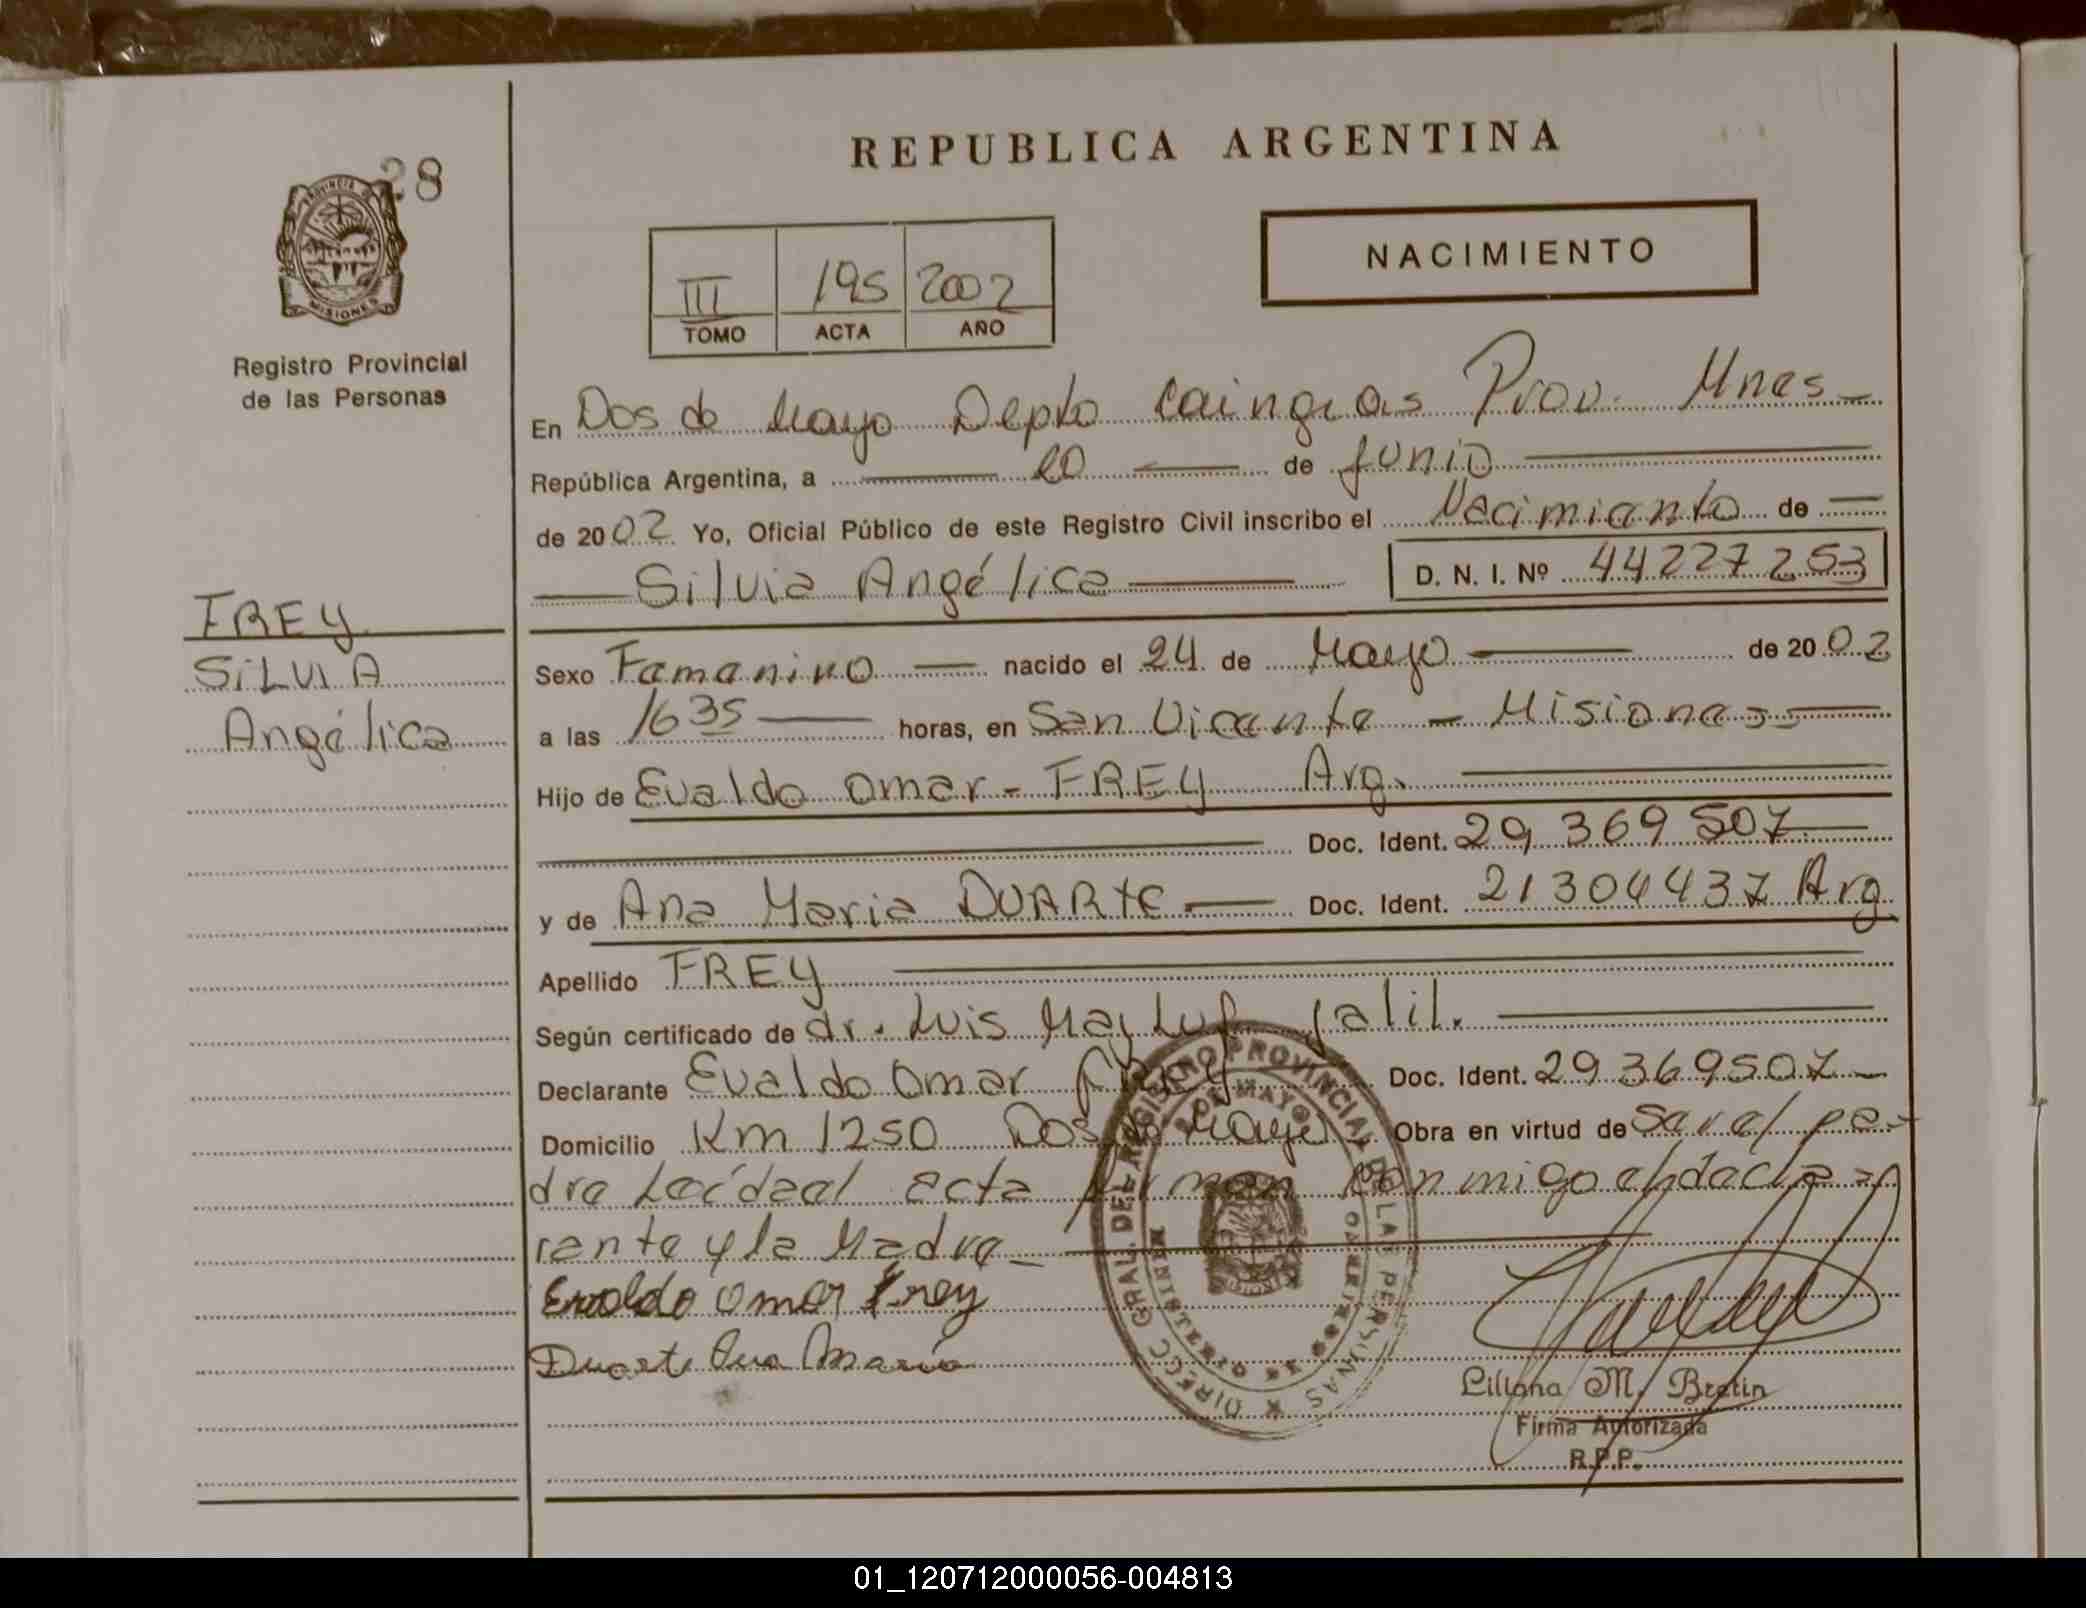 28
REPUBLICA ARGENTINA
PROVINCIA DE
MISIONES
Registro Provincial
de las Personas
III 195 2002
TOMO ACTA AÑO
NACIMIENTO
En Dos de Mayo Depto Cainguas Prov. Mnes
República Argentina, a 20 de junio
de 2002 Yo, Oficial Público de este Registro Civil inscribo el Nacimiento de
Silvia Angélica D. N. I. Nº 44227253
FREY
SILVIA
Angélica
Sexo Femenino nacido el 24 de Mayo de 2002
a las 1635 horas, en San Vicente - Misiones
Hijo de Evaldo Omar - FREY Arg.
Doc. Ident. 29 369 507
y de Ana Maria DUARTE Doc. Ident. 21304437 Arg
Apellido FREY
Según certificado de dr. Luis Jalil.
Declarante Evaldo Omar Frey Doc. Ident. 29369507
Domicilio Km 1250 Dos de Mayo Obra en virtud de ser el pa-
dre Leída el acta firman conmigo el decla-
rante y la Madre
Evaldo Omar Frey
Duarte Ana María
DIRECC. GRAL. DEL REGISTRO PROVINCIAL DE LAS PERSONAS
DOS DE MAYO
MINISTERIO DE GOBIERNO
Liliana M. Bretin
Firma Autorizada
R.P.P.
01_120712000056-004813